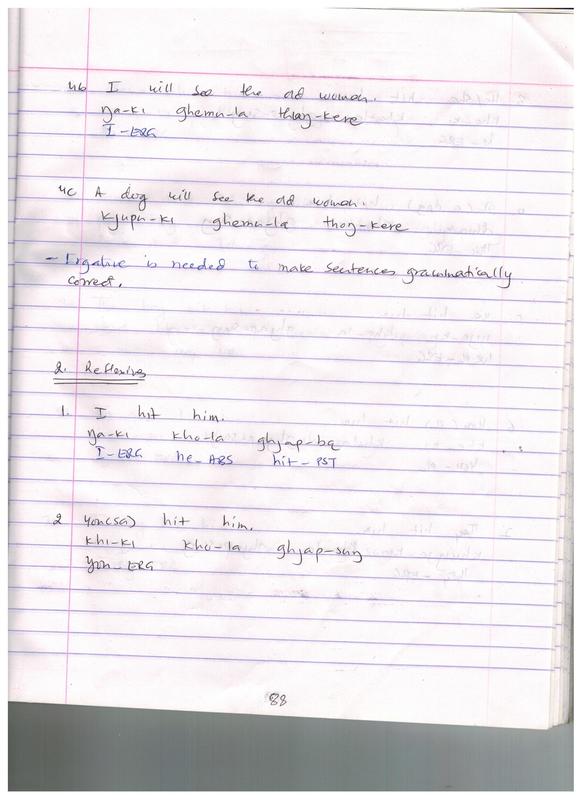 4b I will see the old woman.
ŋa-ki ghemu-la thoŋ-kere
I-ERG
4c A dog will see the old woman.
kjupu-ki ghemu-la thoŋ-kere
- Ergative is needed to make sentences grammatically
correct.
2. Reflexives
1. I hit him.
ŋa-ki kho-la ghjap-bq
I-ERG he-ABS hit-PST
2 you(SG) hit him.
khi-ki kho-la ghjap-suŋ
you-ERG
88